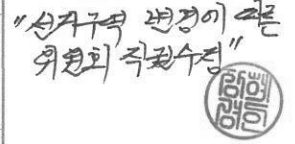 "선거구역 변경에 따른
위원회 직권수정"